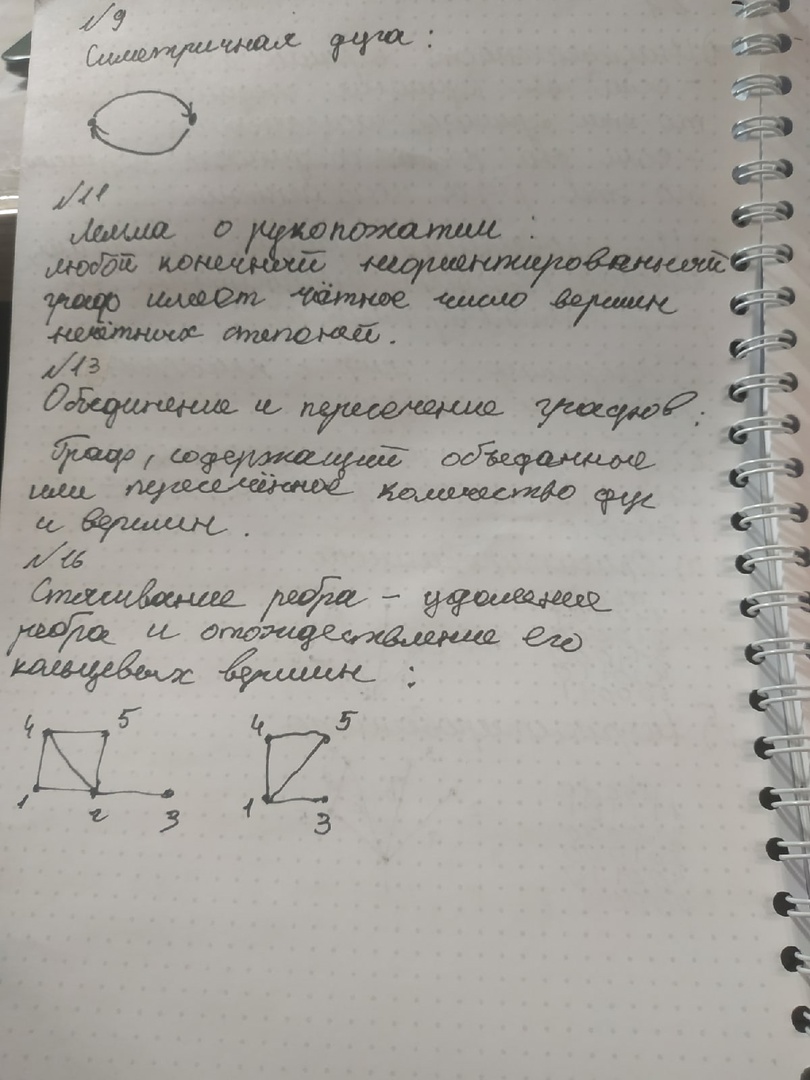 №9
Симетричная дуга:
№11
Лемма о рукопожатии:
любой конечный неориентированный
граф имеет чётное число вершин
нечётных степеней.
№13
Объединение и пересечение графов:
Граф, содержащий объеданные
или пересечённое количество дуг
и вершин.
№16
Стягивание ребра - удаление
ребра и отождествление его
кольцевых вершин:
4 5 4 5
1 2 3 1 3